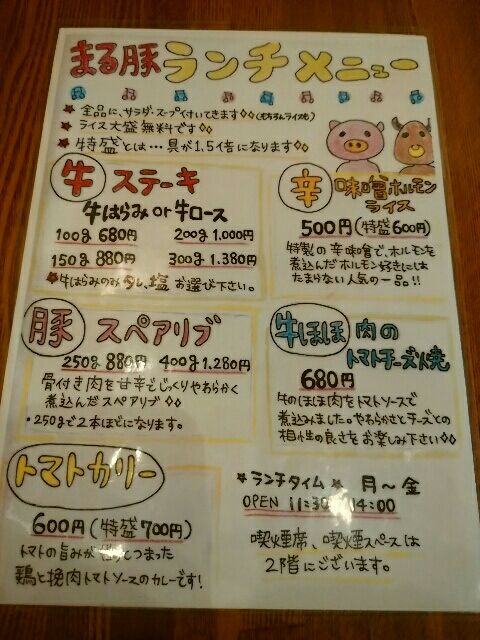 まる豚ランチメニュー
★ 全品に、サラダ・スープ付いてきます◇◇(もちろんライスも)
★ ライス大盛無料です◇◇
★ 特盛とは…具が1.5倍になります◇◇
牛 ステーキ
牛はらみ or 牛ロース
100g 680円 200g 1.000円
150g 880円 300g 1.380円
★牛はらみのみ タレ、塩 お選び下さい。
辛 味噌ホルモンライス
500円(特盛600円)
特製の辛味噌で、ホルモンを
煮込んだホルモン好きには
たまらない人気の一品!!
豚 スペアリブ
250g 880円 400g 1.280円
骨付き肉を甘辛でじっくりやわらかく
煮込んだスペアリブ◇◇
・250gで2本ほどになります。
牛ほほ肉の
トマトチーズ焼
680円
牛のほほ肉をトマトソースで
煮込みました。やわらかさとチーズとの
相性の良さをお楽しみ下さい◇◇
トマトカリー
600円(特盛700円)
トマトの旨みが つまった
鶏と挽肉トマトソースのカレーです!
★ ランチタイム ★ 月〜金
OPEN 11:30 14:00
喫煙席、喫煙スペースは
2階にございます。